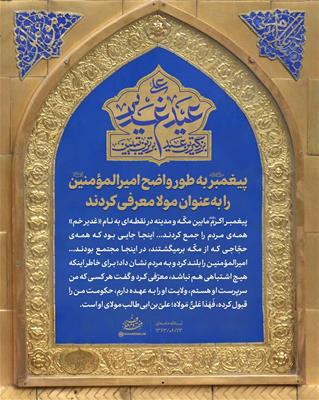 عید غدیر
پیغمبر به طور واضح امیرالمؤمنین
را به عنوان مولا معرفی کردند
پیغمبر اکرم مابین مکّه و مدینه در نقطه‌ای به نام «غدیر خم»
همه‌ی مردم را جمع کردند... اینجا جایی بود که همه‌ی
حجّاجی که از مکّه برمیگشتند، در اینجا مجتمع بودند...
امیرالمؤمنین را بلند کرد و به مردم نشان داد؛ برای خاطر اینکه
هیچ اشتباهی هم نباشد، معرّفی کرد و گفت هر کسی که من
سرپرست او هستم، ولایت او را به عهده دارم، حکومت من را
قبول کرده، فَهٰذا عَلیٌّ مَولاه؛ علیّ بن ابی طالب مولای او است.
آیت‌الله خامنه‌ای
۱۳۶۳/۰۶/۲۳